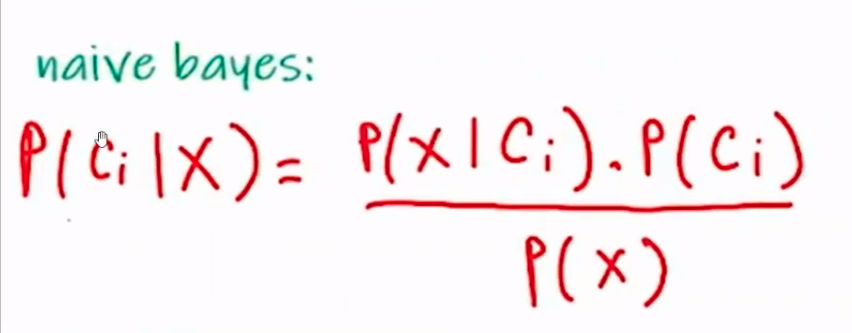 naive bayes:
P(Ci|X) = P(X|Ci).P(Ci)
P(X)